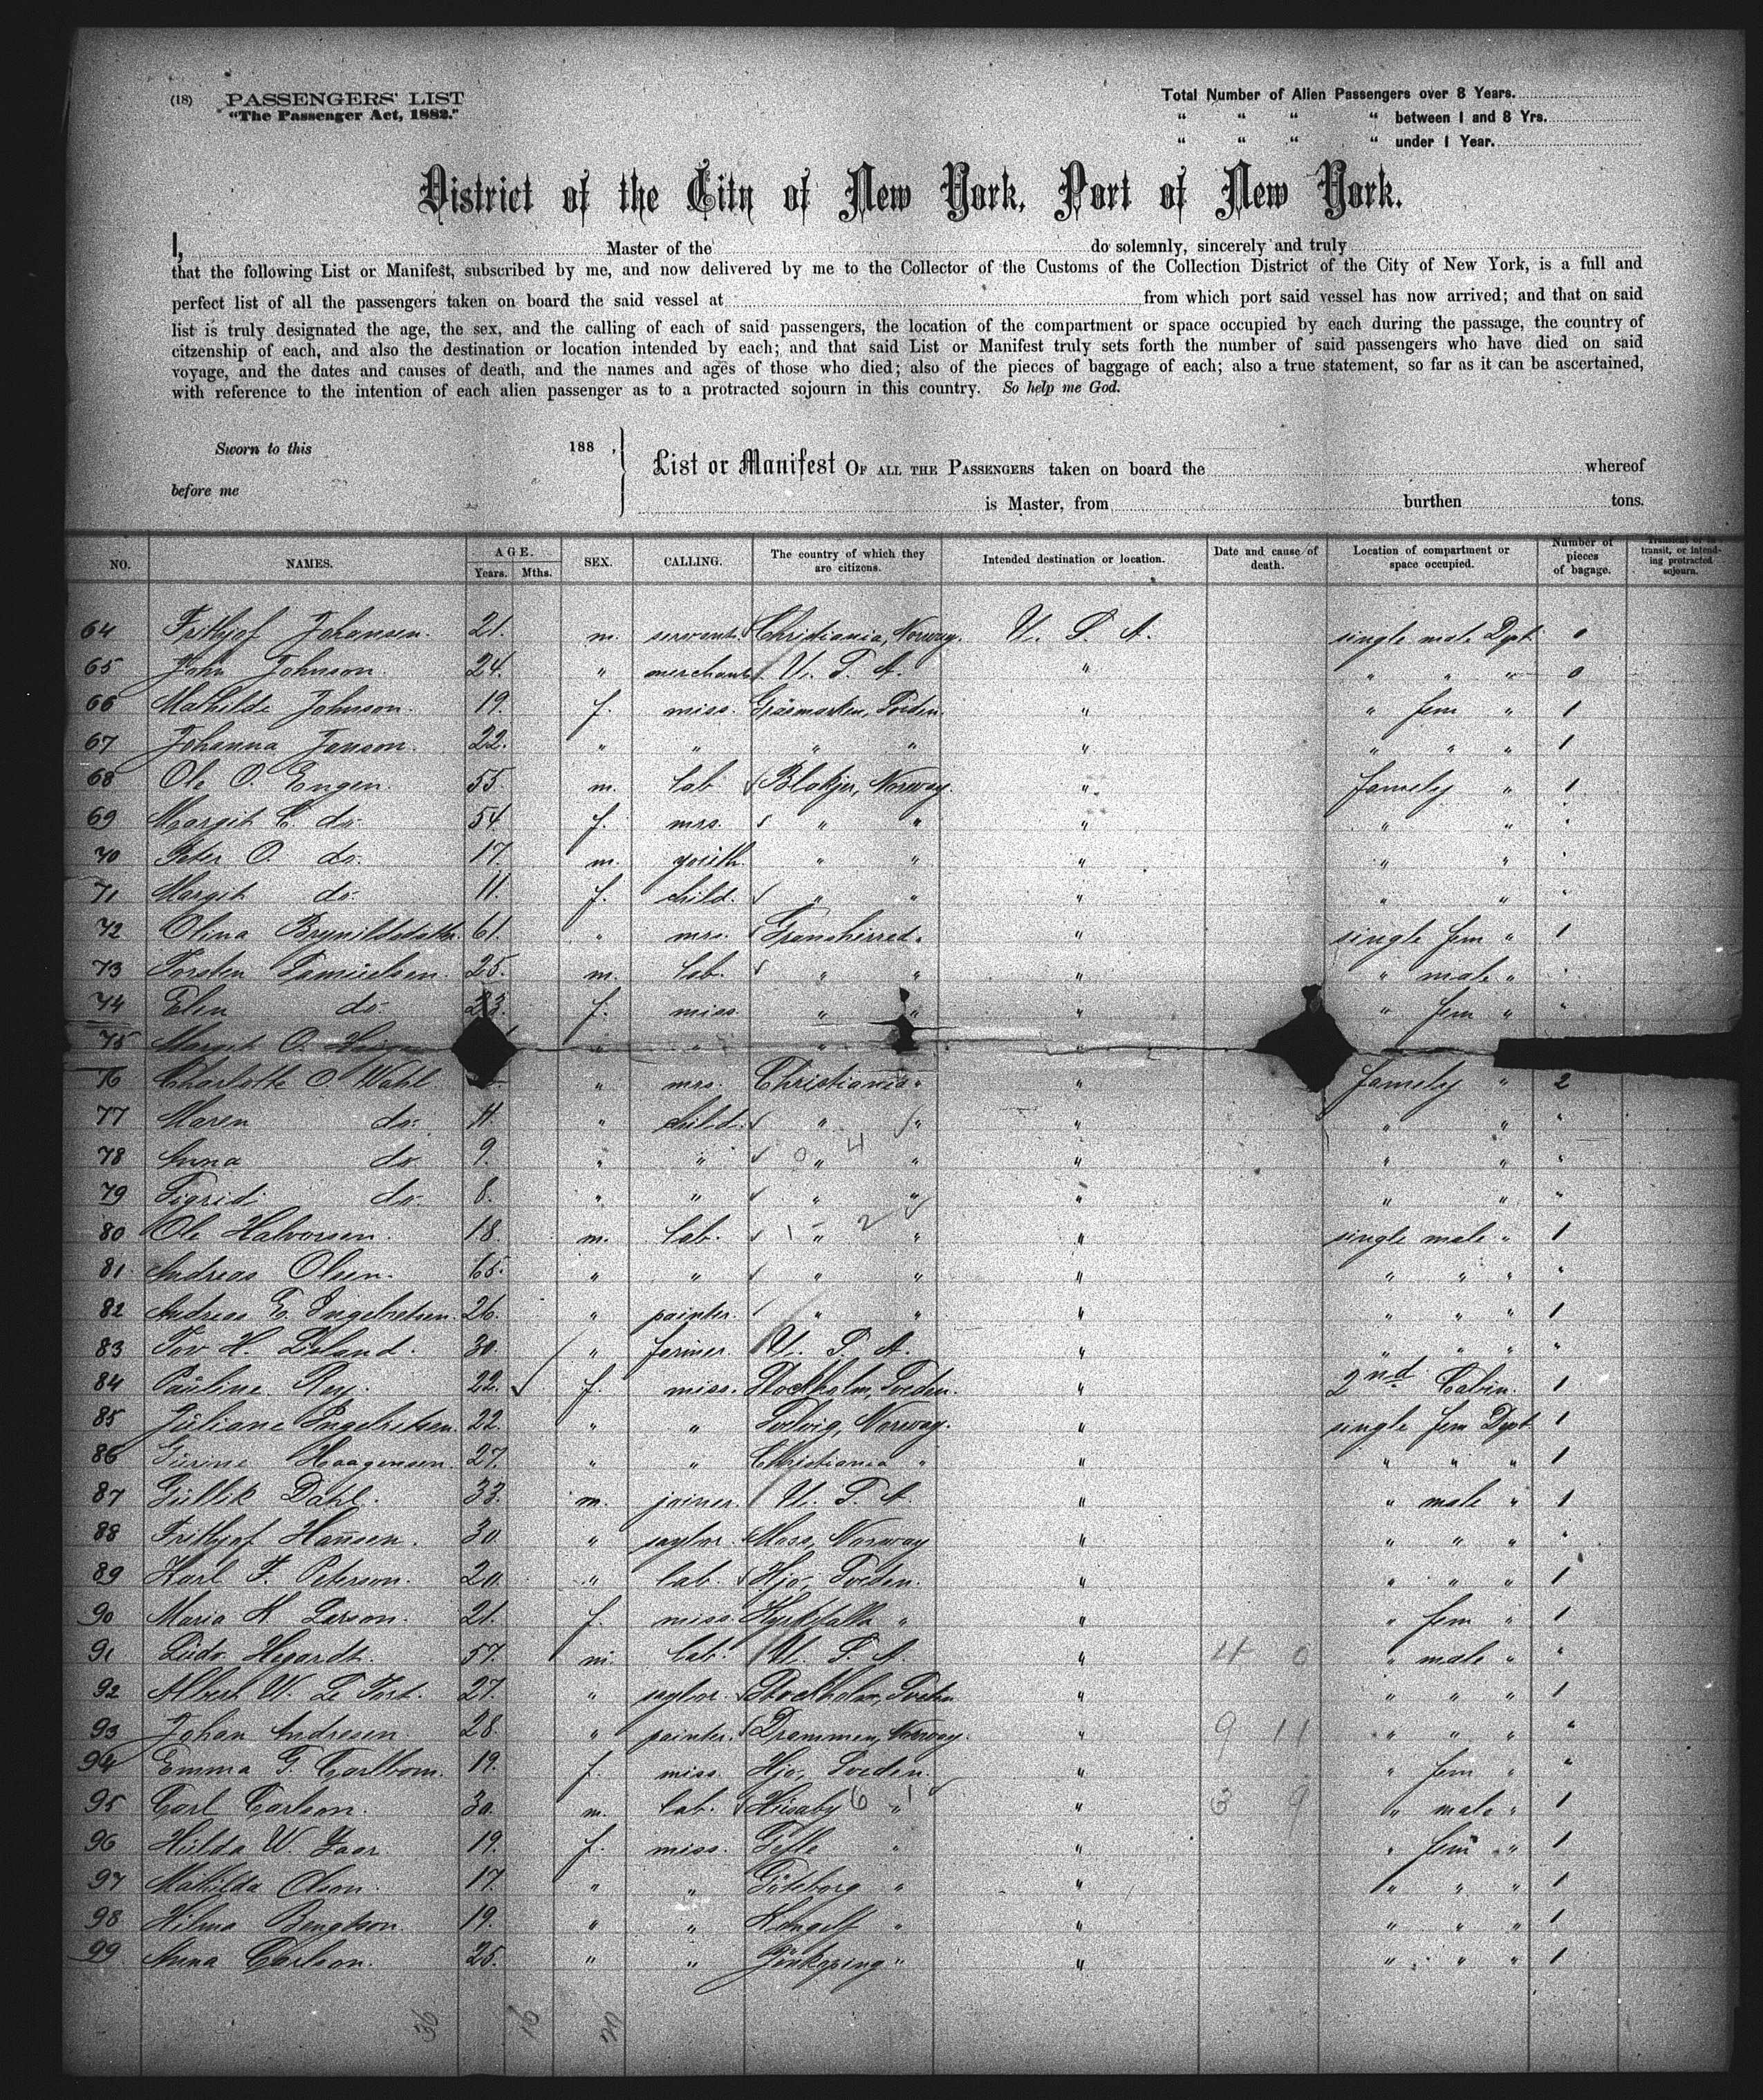 (18) PASSENGERS' LIST
"The Passenger Act, 1882."
Total Number of Alien Passengers over 8 Years.
" " " " between 1 and 8 Yrs.
" " " " under 1 Year.
District of the City of New York, Port of New York.
I, Master of the do solemnly, sincerely and truly
that the following List or Manifest, subscribed by me, and now delivered by me to the Collector of the Customs of the Collection District of the City of New York, is a full and
perfect list of all the passengers taken on board the said vessel at from which port said vessel has now arrived; and that on said
list is truly designated the age, the sex, and the calling of each of said passengers, the location of the compartment or space occupied by each during the passage, the country of
citzenship of each, and also the destination or location intended by each; and that said List or Manifest truly sets forth the number of said passengers who have died on said
voyage, and the dates and causes of death, and the names and ages of those who died; also of the pieces of baggage of each; also a true statement, so far as it can be ascertained,
with reference to the intention of each alien passenger as to a protracted sojourn in this country. So help me God.
Sworn to this 188 ,
before me
List or Manifest OF ALL THE PASSENGERS taken on board the whereof
is Master, from burthen tons.
NO. NAMES. AGE. Years. Mths. SEX. CALLING. The country of which they are citizens. Intended destination or location. Date and cause of death. Location of compartment or space occupied. Number of pieces of bagage. transit, or intend-ing protracted sojourn.
64 Frithjof Johansen. 21. m. servant. Christiania, Norway. U. S. A. single male Dpt. 0
65 John Johnson. 24. " merchant U. S. A. " " " " 0
66 Mathilde Johnson. 19. f. miss. Gräsmarken, Sveden. " " fem " 1
67 Johanna Janson. 22. " " " " " " " " 1
68 Ole O. Engen. 55. m. lab. Blakjer, Norway. " famely " 1
69 Margit C. do. 54. f. mrs. " " " " " "
70 Peter O. do. 17. m. youth. " " " " " "
71 Margit do. 11. f. child. " " " " " "
72 Olina Brynildsdath. 61. " mrs. Gransherred " " single fem " 1
73 Torsten Samuelsen. 25. m. lab. " " " " male " "
74 Elen do. 23. f. miss " " " " fem " "
75 Margit O. " " " "
76 Charlotte O. Wahl. " mrs. Christiania " " famely " 2
77 Maren do. 11. " child. " " " " " "
78 Anna do. 9. " " " " " " " "
79 Sigrid do. 8. " " " " " " " "
80 Ole Halvorsen. 18. m. lab. " " " single male " 1
81 Andreas Olsen. 65. " " " " " " " " "
82 Andreas E. Ingebretsen. 26. " painter. " " " " " " 1
83 Tov H. Deland. 30. " farmer. U. S. A. " " " " "
84 Pauline Rey. 22. f. miss. Stockholm, Sveden. " 2nd Cabin. 1
85 Juliane Engebretsen. 22. " " Svelvig, Norway. " single fem Dept 1
86 Gurine Haagensen. 27. " " Christiania " " " " " 1
87 Gullik Dahl. 33. m. joiner. U. S. A. " " male " 1
88 Frithjof Hansen. 30 " saylor. Moss, Norway " " " " "
89 Karl F. Peterson. 20. " lab. Hjo, Sveden. " " " " 1
90 Maria K. Larson. 21. f. miss. " " " fem " 1
91 Ludv. Hegardt. 57. m. lab. U. S. A. " 4 0 " male " "
92 Albert W. 27. " saylor. Stockholm, Sveden " " " " 1
93 Johan Andresen. 28. " painter. Drammen, Norway. " 9 11 " " " "
94 Emma G. Carlbom. 19. f. miss. Hjo, Sveden. " " fem " "
95 Carl Carlson. 30. m. lab. Husaby 6 " 1 " 3 9 " male " 1
96 Hulda W. 19. f. miss. Gefle " " " fem " 1
97 Mathilda Olson. 17. " " Göteborg " " " " " 1
98 Hilma Bengtson. 19. " " Kongelf " " " " " 1
99 Anna Carlson. 25. " " Jönköping " " " " " 1
36 16 20